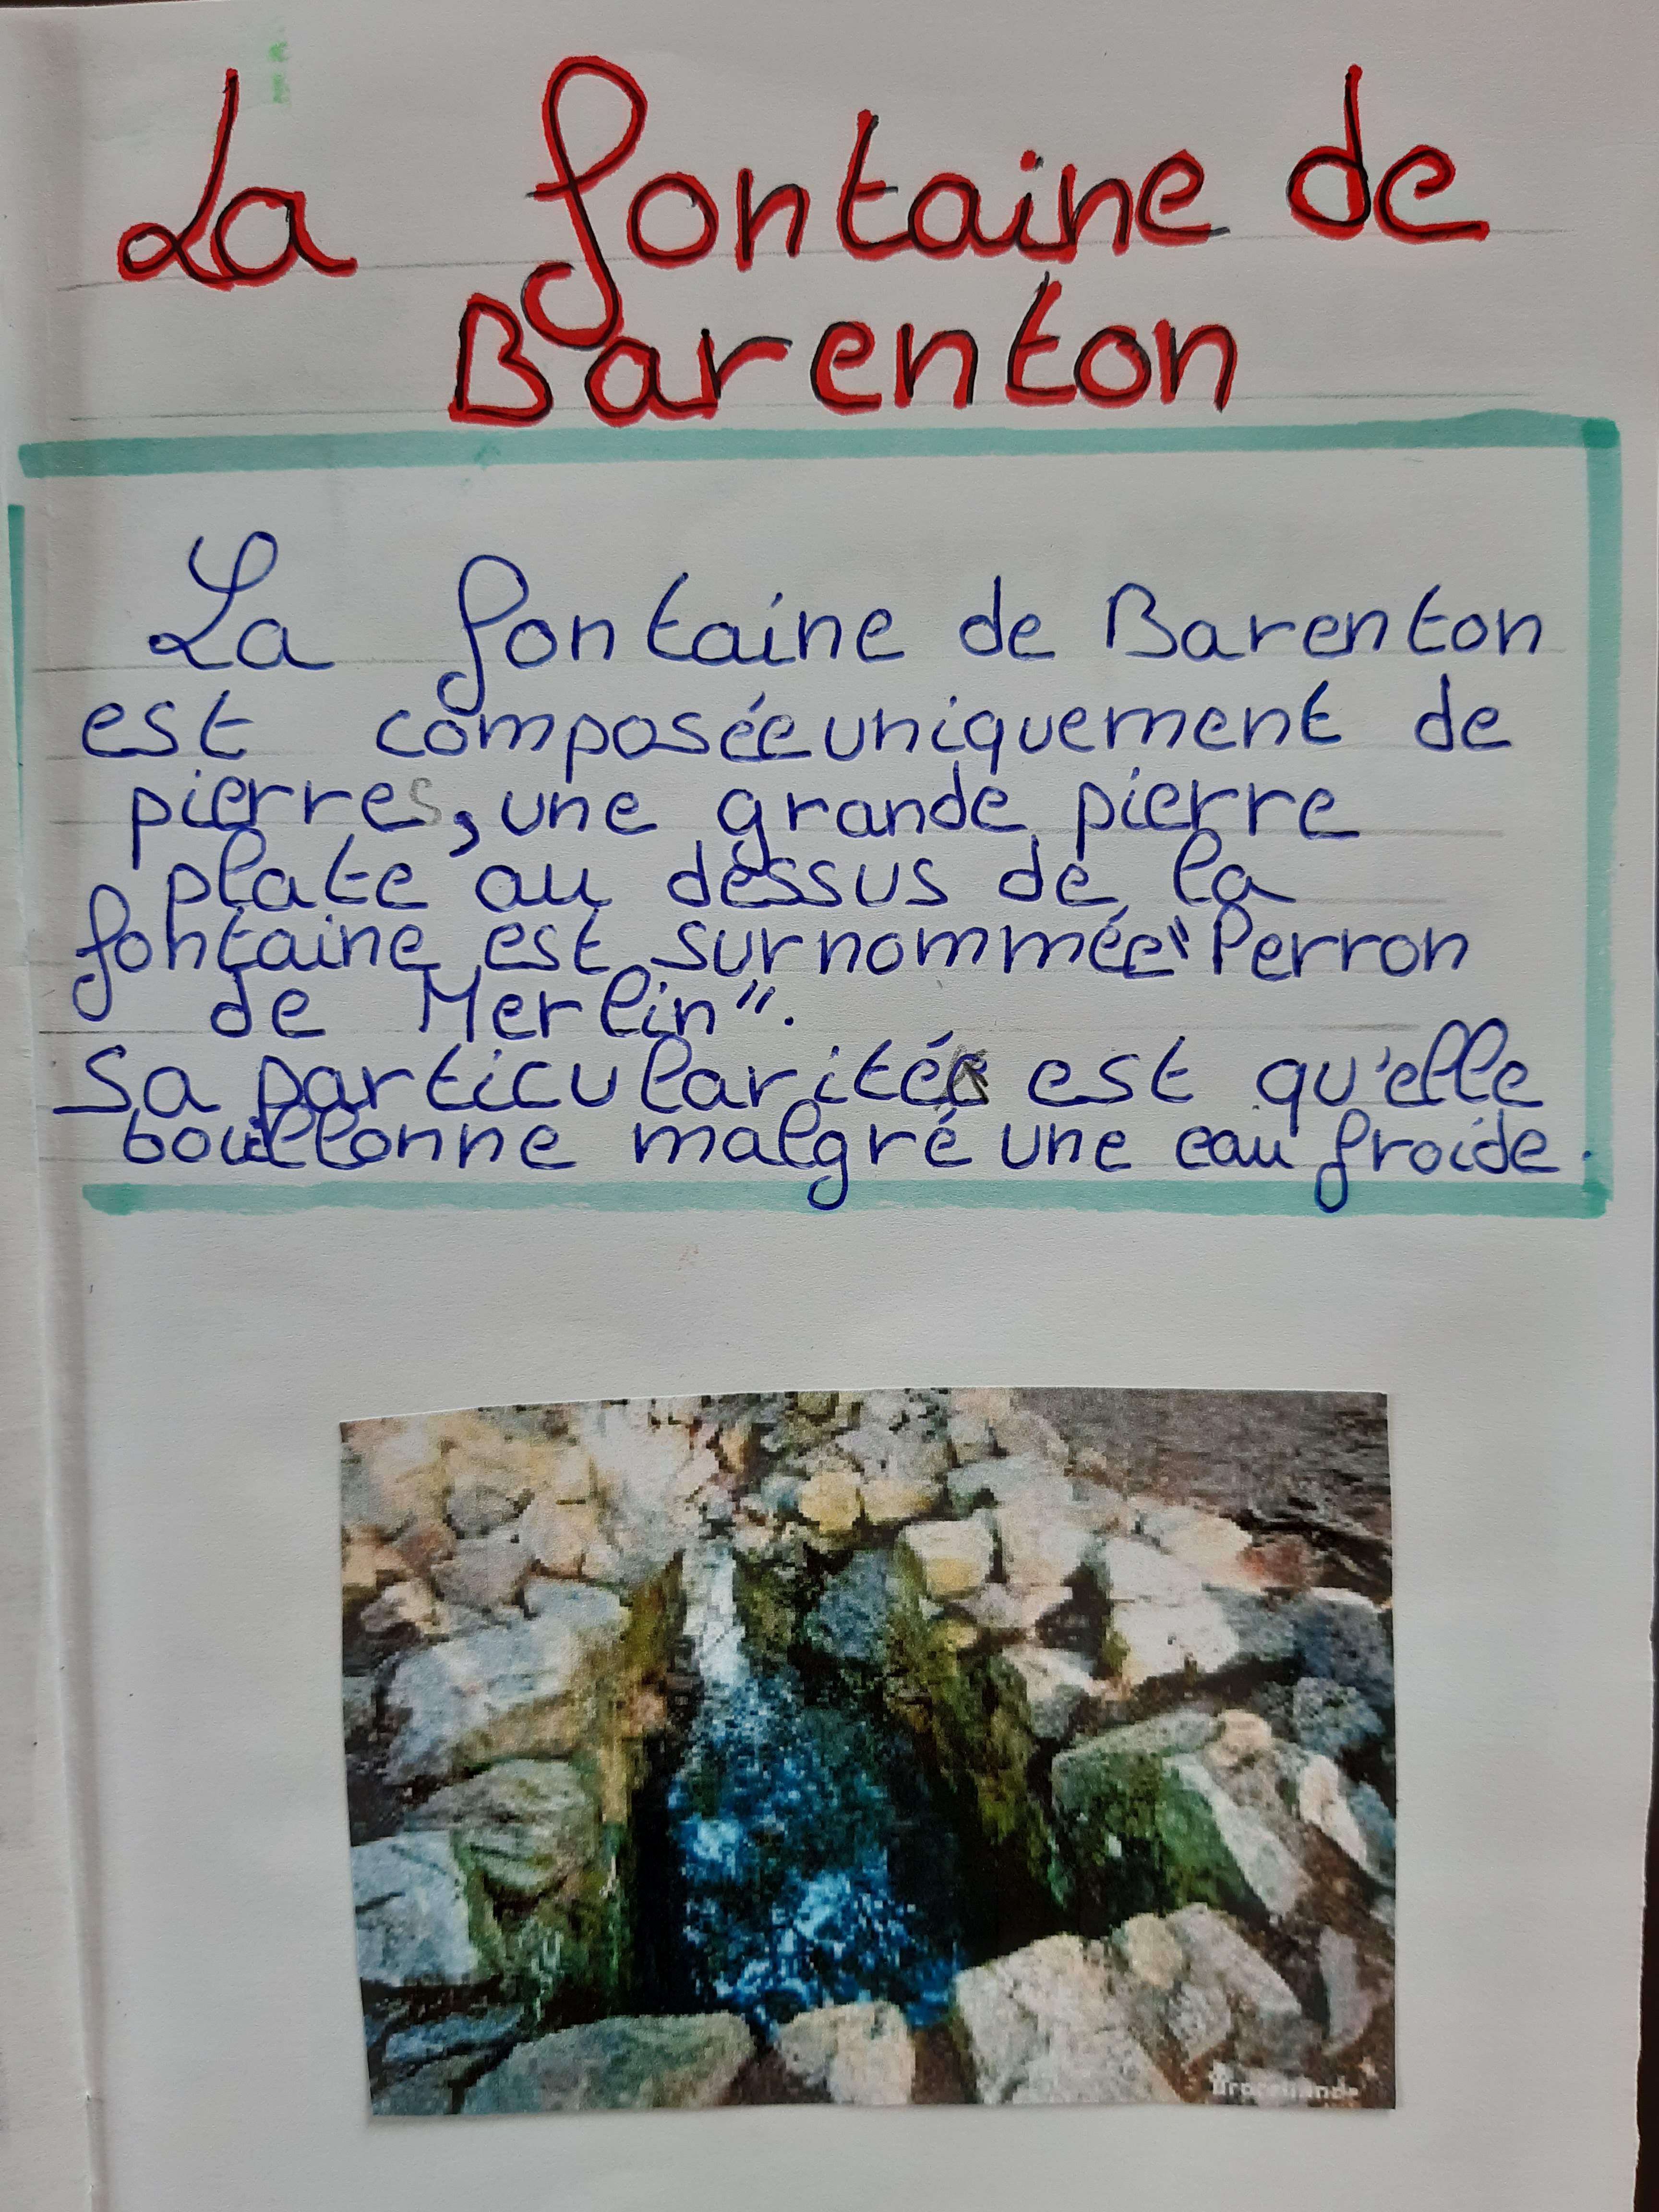 La fontaine de
Barenton
La fontaine de Barenton
est composée uniquement de
pierres, une grande pierre
plate au dessus de la
fontaine est surnommée "Perron
de Merlin".
Sa particularité est qu'elle
bouillonne malgré une eau froide.